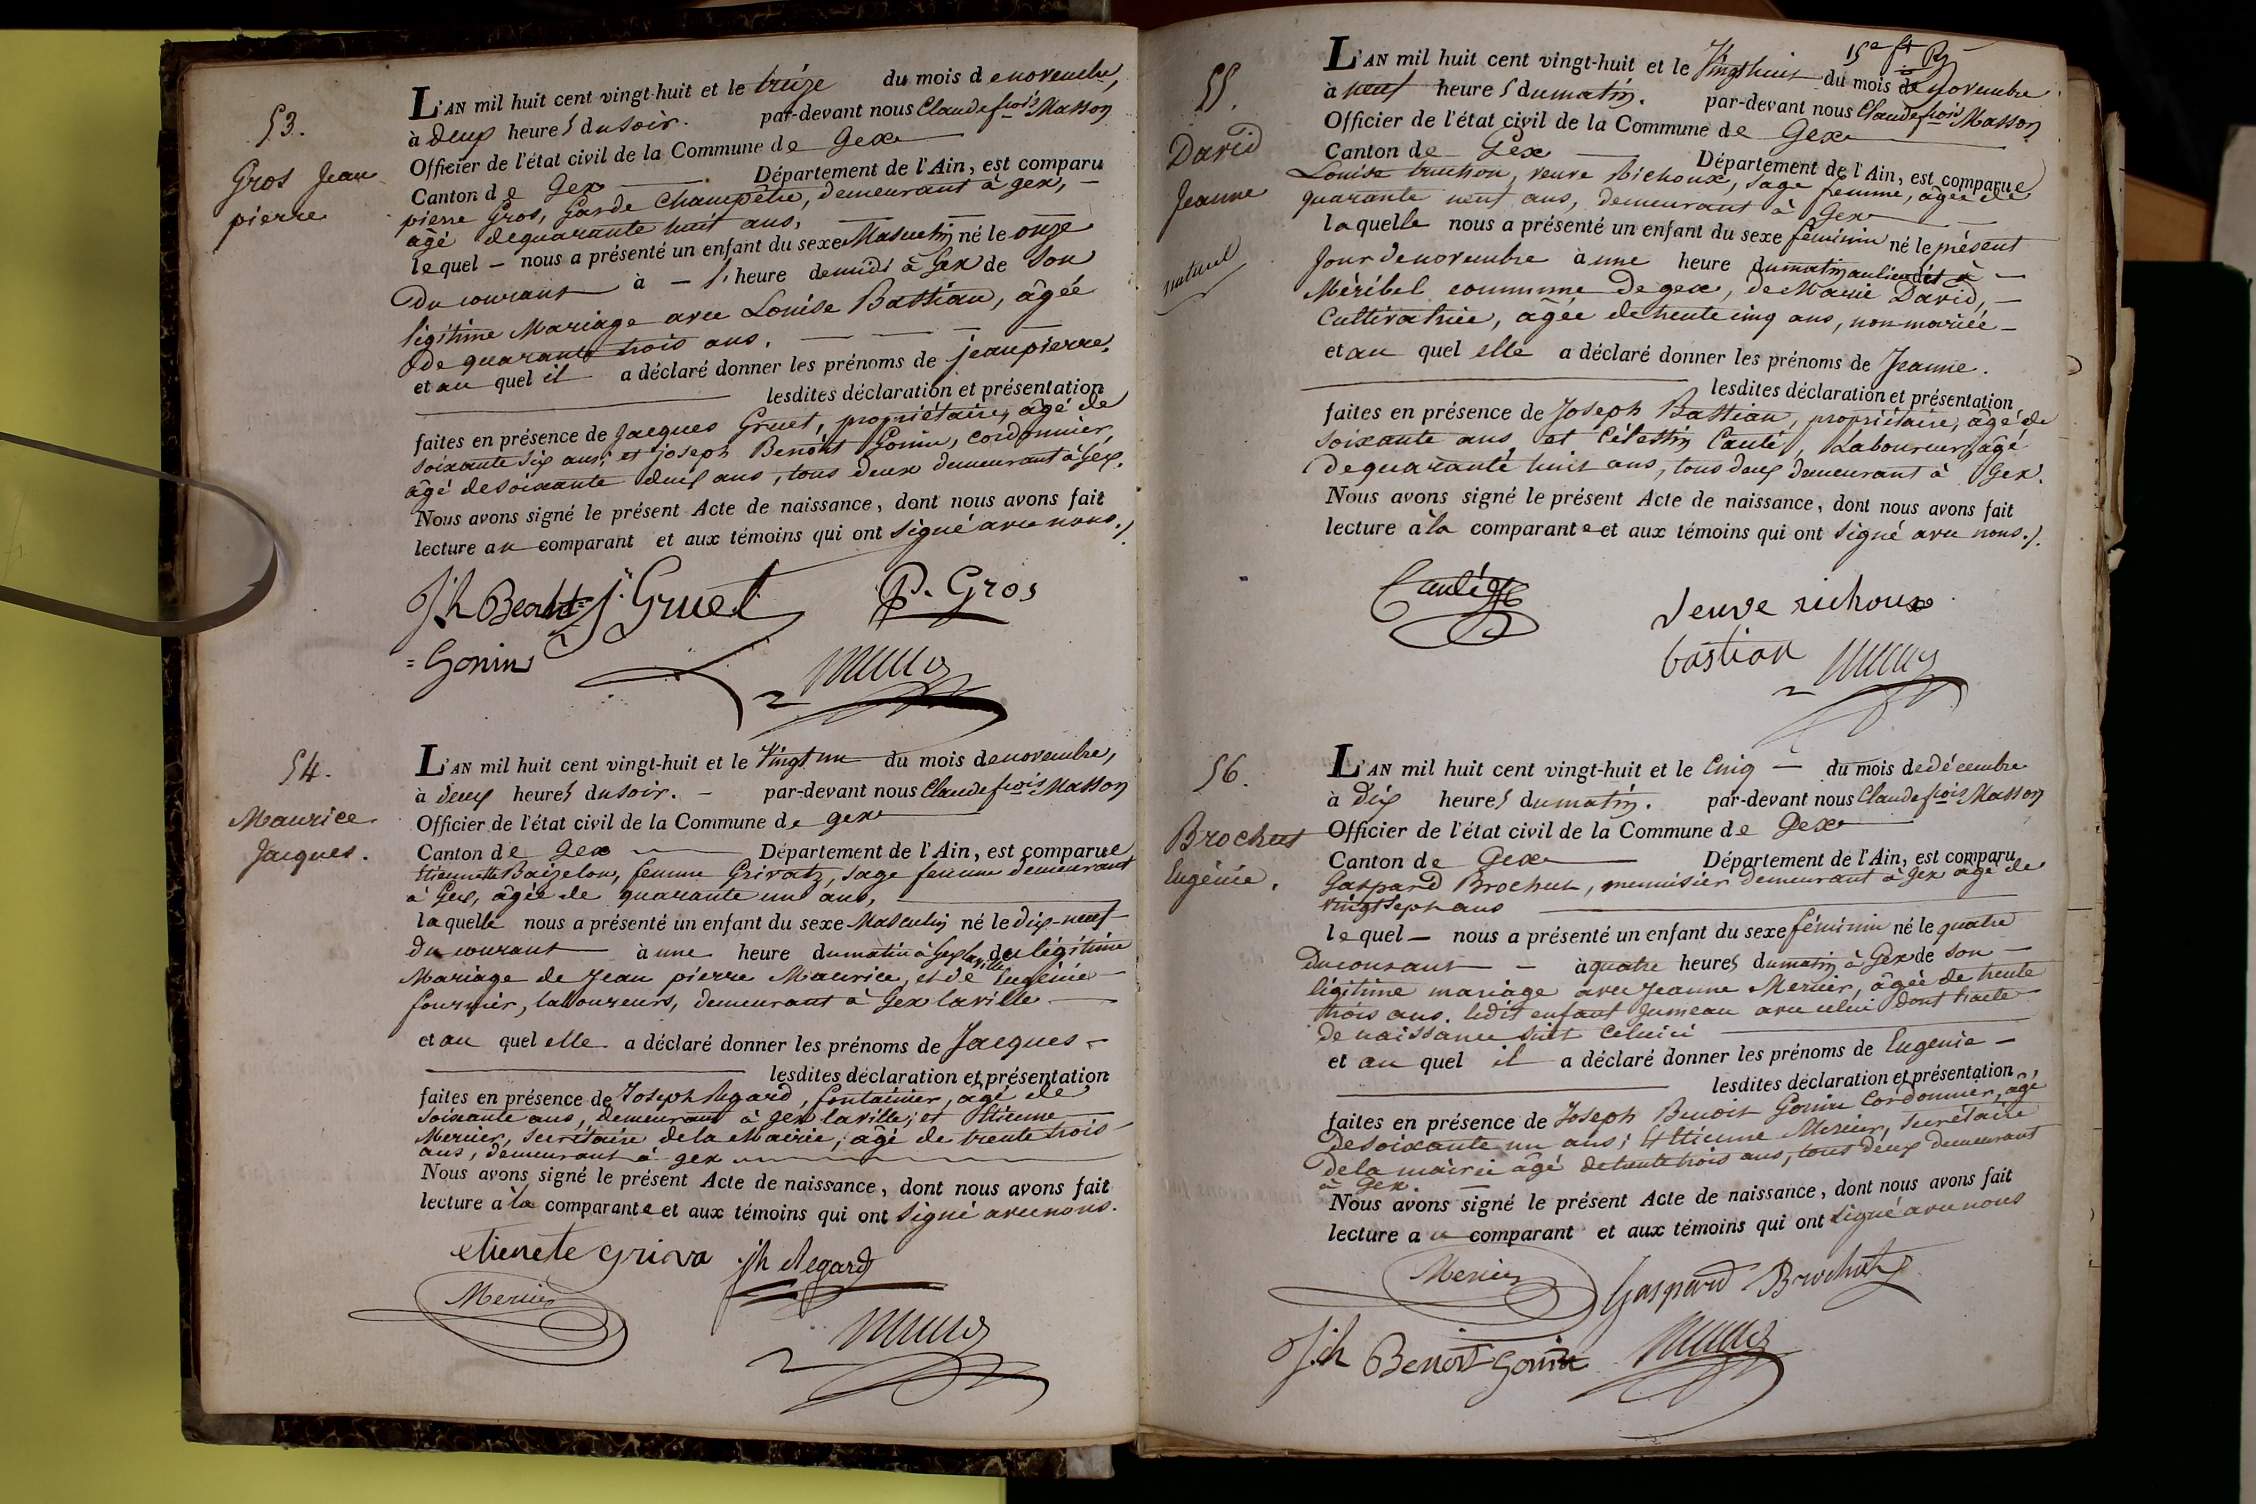 53.
Gros Jean
pierre
L'AN mil huit cent vingt-huit et le treize du mois de novembre,
à deux heures du soir. par-devant nous Claude fçois Masson
Officier de l'état civil de la Commune de Gex
Canton de Gex Département de l'Ain, est comparu
pierre Gros, Garde Champêtre, demeurant à gex,
âgé de quarante huit ans,
lequel nous a présenté un enfant du sexe Masculin né le onze
du courant à l'heure de midi à Gex de son
légitime Mariage avec Louise Bastian, âgée
de quarante trois ans.
et au quel il a déclaré donner les prénoms de jean pierre.
lesdites déclaration et présentation
faites en présence de Jacques Gruet, propriétaire, âgé de
soixante six ans; et joseph Benoit Gonin, cordonnier,
âgé de soixante deux ans, tous deux demeurant à Gex.
Nous avons signé le présent Acte de naissance, dont nous avons fait
lecture au comparant et aux témoins qui ont signé avec nous./.
Jh Benoit J. Gruet P. Gros
= Gonin
54.
Maurice
Jacques.
L'AN mil huit cent vingt-huit et le Vingt un du mois de novembre,
à deux heures du soir. par-devant nous Claude fçois Masson
Officier de l'état civil de la Commune de gex
Canton de Gex Département de l'Ain, est comparue
Etiennette Baizelon, femme Grivatz, sage femme demeurant
à Gex, âgée de quarante un ans,
laquelle nous a présenté un enfant du sexe Masculin né le dix-neuf
du courant à une heure du matin à Gex la ville du légitime
Mariage de Jean pierre Maurice, et de Eugénie
fournier, laboureurs, demeurant à Gex la ville
et au quel elle a déclaré donner les prénoms de Jacques
lesdites déclaration et présentation
faites en présence de Joseph Regard, fontainier, âgé de
soixante ans, demeurant à gex la ville; et Etienne
Mercier, secrétaire de la Mairie, âgé de trente trois
ans, demeurant à gex
Nous avons signé le présent Acte de naissance, dont nous avons fait
lecture à la comparante et aux témoins qui ont signé avec nous.
etienete griva jh Regard
Mercier
55.
David
Jeanne
naturel
L'AN mil huit cent vingt-huit et le Vingt huit du mois de Novembre
à neuf heures du matin. par-devant nous Claude fçois Masson
Officier de l'état civil de la Commune de Gex
Canton de Gex Département de l'Ain, est comparue
Louise truchon, veuve Richoux, sage femme, âgée de
quarante neuf ans, demeurant à Gex
laquelle nous a présenté un enfant du sexe féminin né le présent
jour de novembre à une heure du matin au lieu dit à
Méribel commune de gex, de Marie David,
Cultivatrice, âgée de trente cinq ans, non mariée
et au quel elle a déclaré donner les prénoms de Jeanne.
lesdites déclaration et présentation
faites en présence de Joseph Bastian, propriétaire, âgé de
soixante ans, et Célestin Caulé, Laboureur, âgé
de quarante huit ans, tous deux demeurant à Gex.
Nous avons signé le présent Acte de naissance, dont nous avons fait
lecture à la comparante et aux témoins qui ont signé avec nous./.
Caulé
veuve richoux
bastian
56.
Brochut
Eugénie.
L'AN mil huit cent vingt-huit et le Cinq du mois de décembre
à dix heures du matin. par-devant nous Claude fçois Masson
Officier de l'état civil de la Commune de Gex
Canton de Gex Département de l'Ain, est comparu
Gaspard Brochut, menuisier demeurant à Gex âgé de
vingt sept ans
lequel nous a présenté un enfant du sexe féminin né le quatre
du courant à quatre heures du matin à Gex de son
légitime mariage avec Jeanne Mercier, âgée de trente
trois ans. ledit enfant jumeau avec celui dont l'acte
de naissance suit celui ci
et au quel il a déclaré donner les prénoms de Eugénie
lesdites déclaration et présentation
faites en présence de Joseph Benoit Gonin Cordonnier, âgé
de soixante un ans; et Etienne Mercier, secrétaire
de la mairie âgé de trente trois ans, tous deux demeurant
à Gex.
Nous avons signé le présent Acte de naissance, dont nous avons fait
lecture au comparant et aux témoins qui ont signé avec nous
Mercier Gaspard Brochut
Jh Benoit Gonin